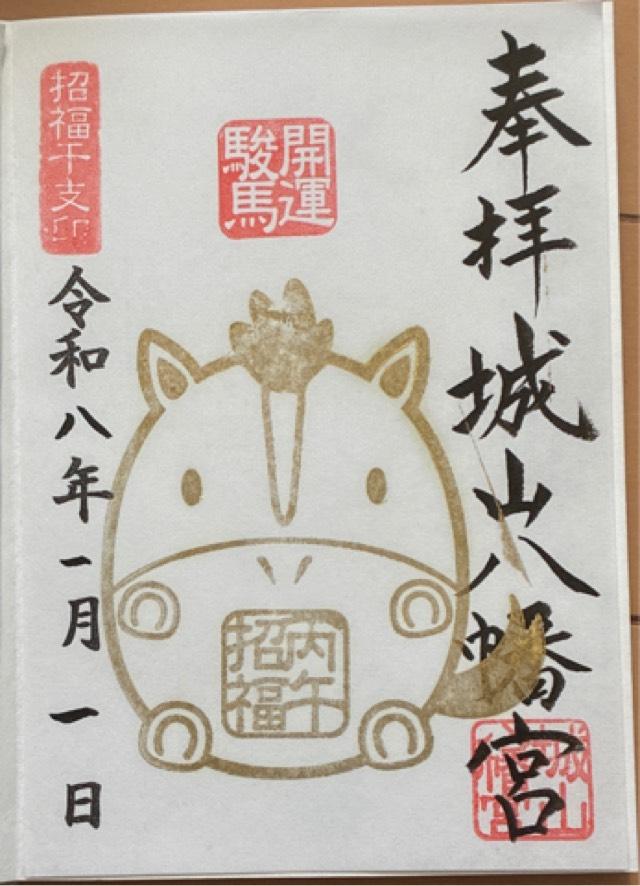 奉拝 城山八幡宮
開運
駿馬
丙午
招福
城山
八幡宮
招福干支印
令和八年一月一日